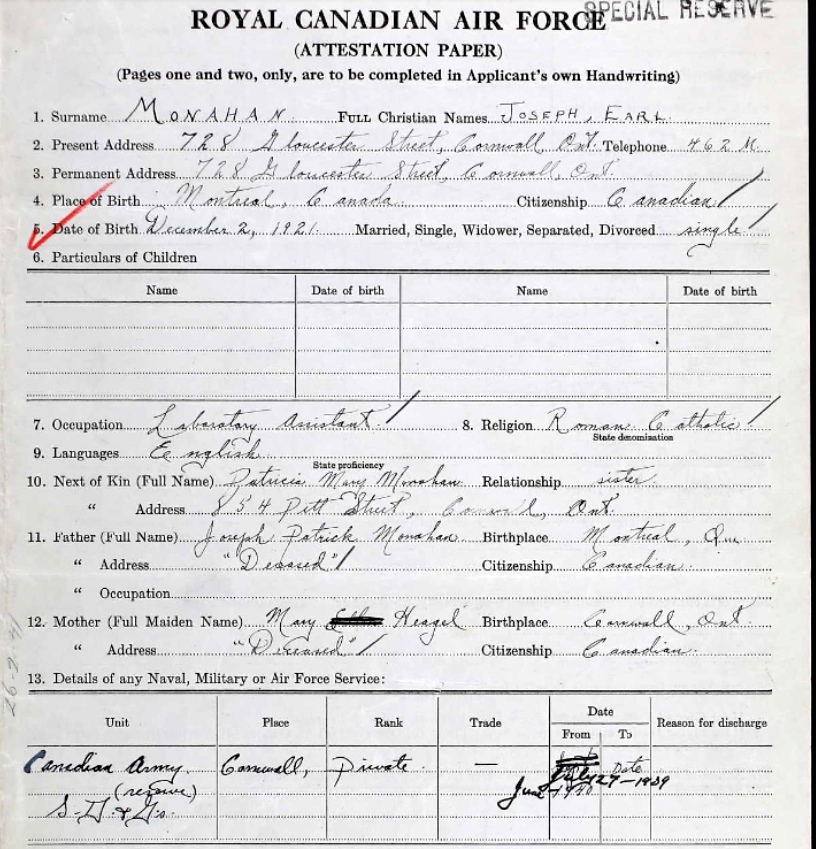 SPECIAL RESERVE
ROYAL CANADIAN AIR FORCE
(ATTESTATION PAPER)
(Pages one and two, only, are to be completed in Applicant's own Handwriting)
1. Surname MONAHAN. FULL Christian Names JOSEPH, EARL.
2. Present Address 728 Gloucester Street, Cornwall Ont. Telephone 462 M.
3. Permanent Address 728 Gloucester Street, Cornwall, Ont.
4. Place of Birth Montreal, Canada. Citizenship Canadian
5. Date of Birth December 2, 1921. Married, Single, Widower, Separated, Divorced single
6. Particulars of Children
Name Date of birth Name Date of birth
7. Occupation Laboratory Assistant. 8. Religion Roman Catholic
State denomination
9. Languages English
State proficiency
10. Next of Kin (Full Name) Patricia Mary Monahan Relationship sister.
" Address 854 Pitt Street, Cornwall, Ont.
11. Father (Full Name) Joseph Patrick Monahan Birthplace Montreal, Que.
" Address "Deseased" Citizenship Canadian.
" Occupation
12. Mother (Full Maiden Name) Mary Heagel Birthplace Cornwall, Ont.
" Address "Deceased" Citizenship Canadian.
13. Details of any Naval, Military or Air Force Service:
Unit Place Rank Trade Date Reason for discharge
From To
Canadian Army. Cornwall, private. — Date
(reserve) July 27-1939
S.D.&G's. June 1940
26-2-41